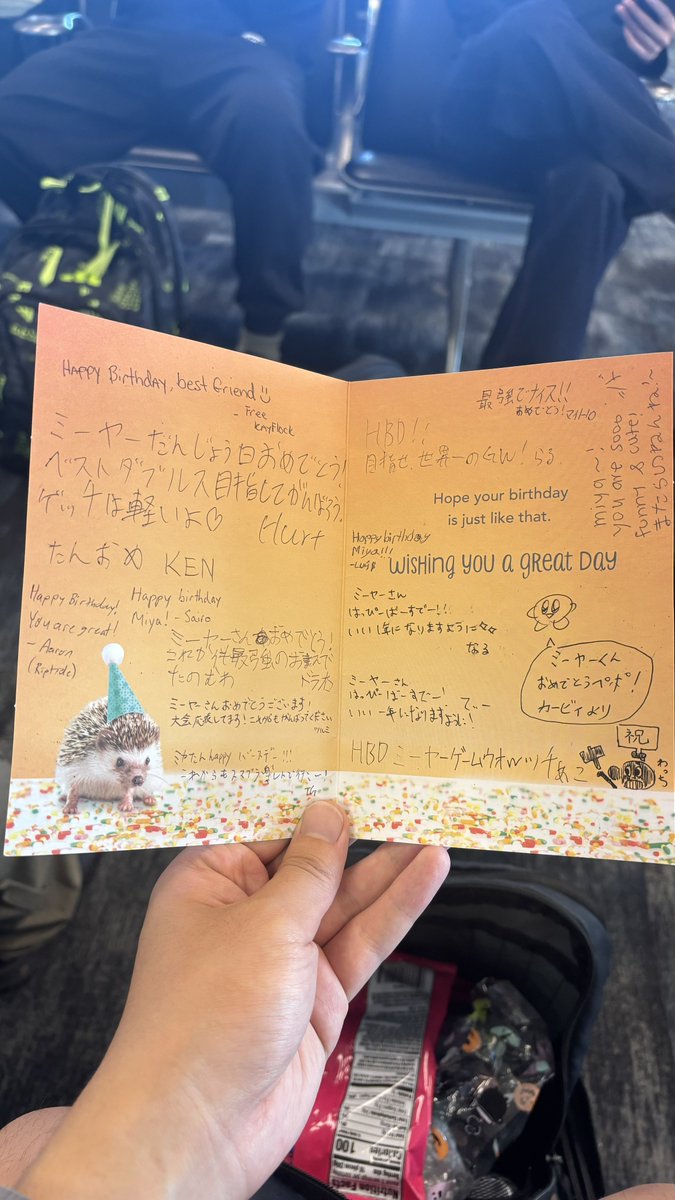 Happy Birthday, best friend
- Free
KayFlock
ミーヤーだんじょう日おめでとう!
ベストダブルス目指してがんばろう。
ゲッチは軽いよ♡
Hurt
たんおめ KEN
Happy Birthday,
You are great!
- Aaron
(Riptide)
Happy birthday
Miya! - Sairo
ミーヤーさんおめでとう!
これから件最強のお
たのむわ
ミーヤーさんおめでとうございます!
大会応援してます!これからもがんばってください
ツルミ
ミカたん happy バースデー!!!
これからもスマブラ
最強でナイス!!
おめでとう!
HBD!!
目指せ、世界一のGW! らる
miya~!
you are sooo
funny & umai
また
Hope your birthday
is just like that.
Happy birthday
Miya!!!
wishing you a great day
ミーヤーさん
はっぴーばーすでー!!
いい1年になりますように☆☆
なる
ミーヤーさん
はっぴーばーすでー!
てぃー
いい一年になりますように!
ミーヤーくん
おめでとうペポ!
カービィより
祝
わっち
HBD ミーヤーゲームウォッチ あこ
Nutrition Facts
Calories
100